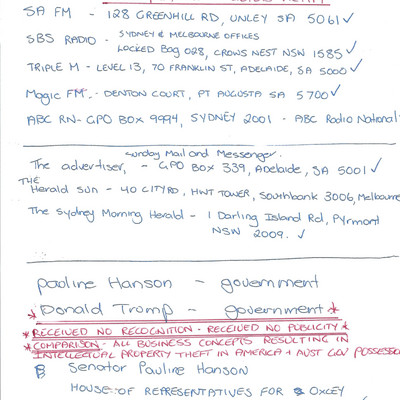 SA FM - 128 GREENHILL RD, UNLEY SA 5061 ✓
SBS RADIO - SYDNEY & MELBOURNE OFFICES
LOCKED BAG 028, CROWS NEST NSW 1585 ✓
TRIPLE M - LEVEL 13, 70 FRANKLIN ST, ADELAIDE, SA 5000 ✓
Magic FM - DENTON COURT, PT AUGUSTA SA 5700 ✓
ABC RN - GPO BOX 9994, SYDNEY 2001 - ABC Radio National
Sunday Mail and Messenger.
The advertiser, - GPO BOX 339, Adelaide, SA 5001 ✓
THE Herald Sun - 40 CITY RD, HWT TOWER, Southbank 3006, Melbourne
The Sydney Morning Herald - 1 Darling Island Rd, Pyrmont
NSW 2009. ✓
Pauline Hanson - government
*Donald Trump - government*
*RECEIVED NO RECOGNITION - RECEIVED NO PUBLICITY*
*COMPARISON - ALL BUSINESS CONCEPTS RESULTING IN
INTELLECTUAL PROPERTY THEFT IN AMERICA + AUST GOV POSSESS
Senator Pauline Hanson
HOUSE OF REPRESENTATIVES FOR OXLEY